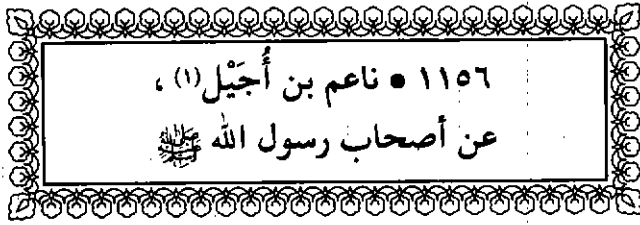 ١١٥٦ • ناعم بن أُجَيْل(١) ،
عن أصحاب رسول الله ﷺ